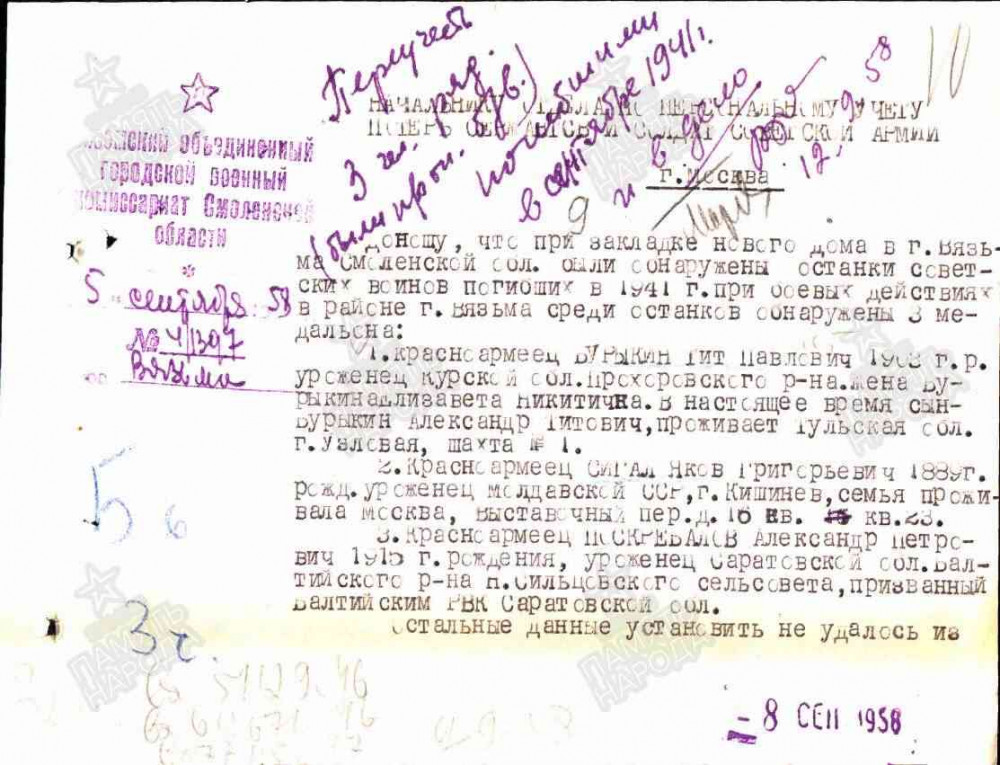 Переучесть
3 чел. ряд.
(были проп. б/зв.)
погибшими
в сентябре 1941 г.
и в дело
12.9.58
10
НАЧАЛЬНИКУ ОТДЕЛА ПО ПЕРСОНАЛЬНОМУ УЧЕТУ
ПОТЕРЬ СЕРЖАНТОВ И СОЛДАТ СОВЕТСКОЙ АРМИИ
г.Москва
Вяземский объединенный
городской военный
комиссариат Смоленской
области
5 сентября 58
№ 4/1397
Вязьма
9
Доношу, что при закладке нового дома в г.Вязь-
ма Смоленской обл. были обнаружены останки совет-
ских воинов погибших в 1941 г.при боевых действиях
в районе г.Вязьма среди останков обнаружены 3 ме-
дальона:
1.Красноармеец БУРЫКИН Тит Павлович 1903 г.р.
уроженец Курской обл.Прохоровского р-на.жена Бу-
рыкина Елизавета Никитична.В настоящее время сын-
Бурыкин Александр Титович,проживает Тульская обл.
г.Узловая, шахта № 1.
2.Красноармеец СИГАЛ Яков Григорьевич 1889г.
рожд.уроженец Молдавской ССР,г.Кишинев,семья прожи-
вала Москва, Выставочный пер.д.16 кв. кв.23.
3.Красноармеец ПОСКРЕБАЛОВ Александр Петро-
вич 1915 г.рождения, уроженец Саратовской обл.Бал-
тийского р-на Н.Сильцовского сельсовета,призванный
Балтийским РВК Саратовской обл.
Остальные данные установить не удалось из
Б 6
3 г.
- 8 СЕН 1958
ПАМЯТЬ
НАРОДА